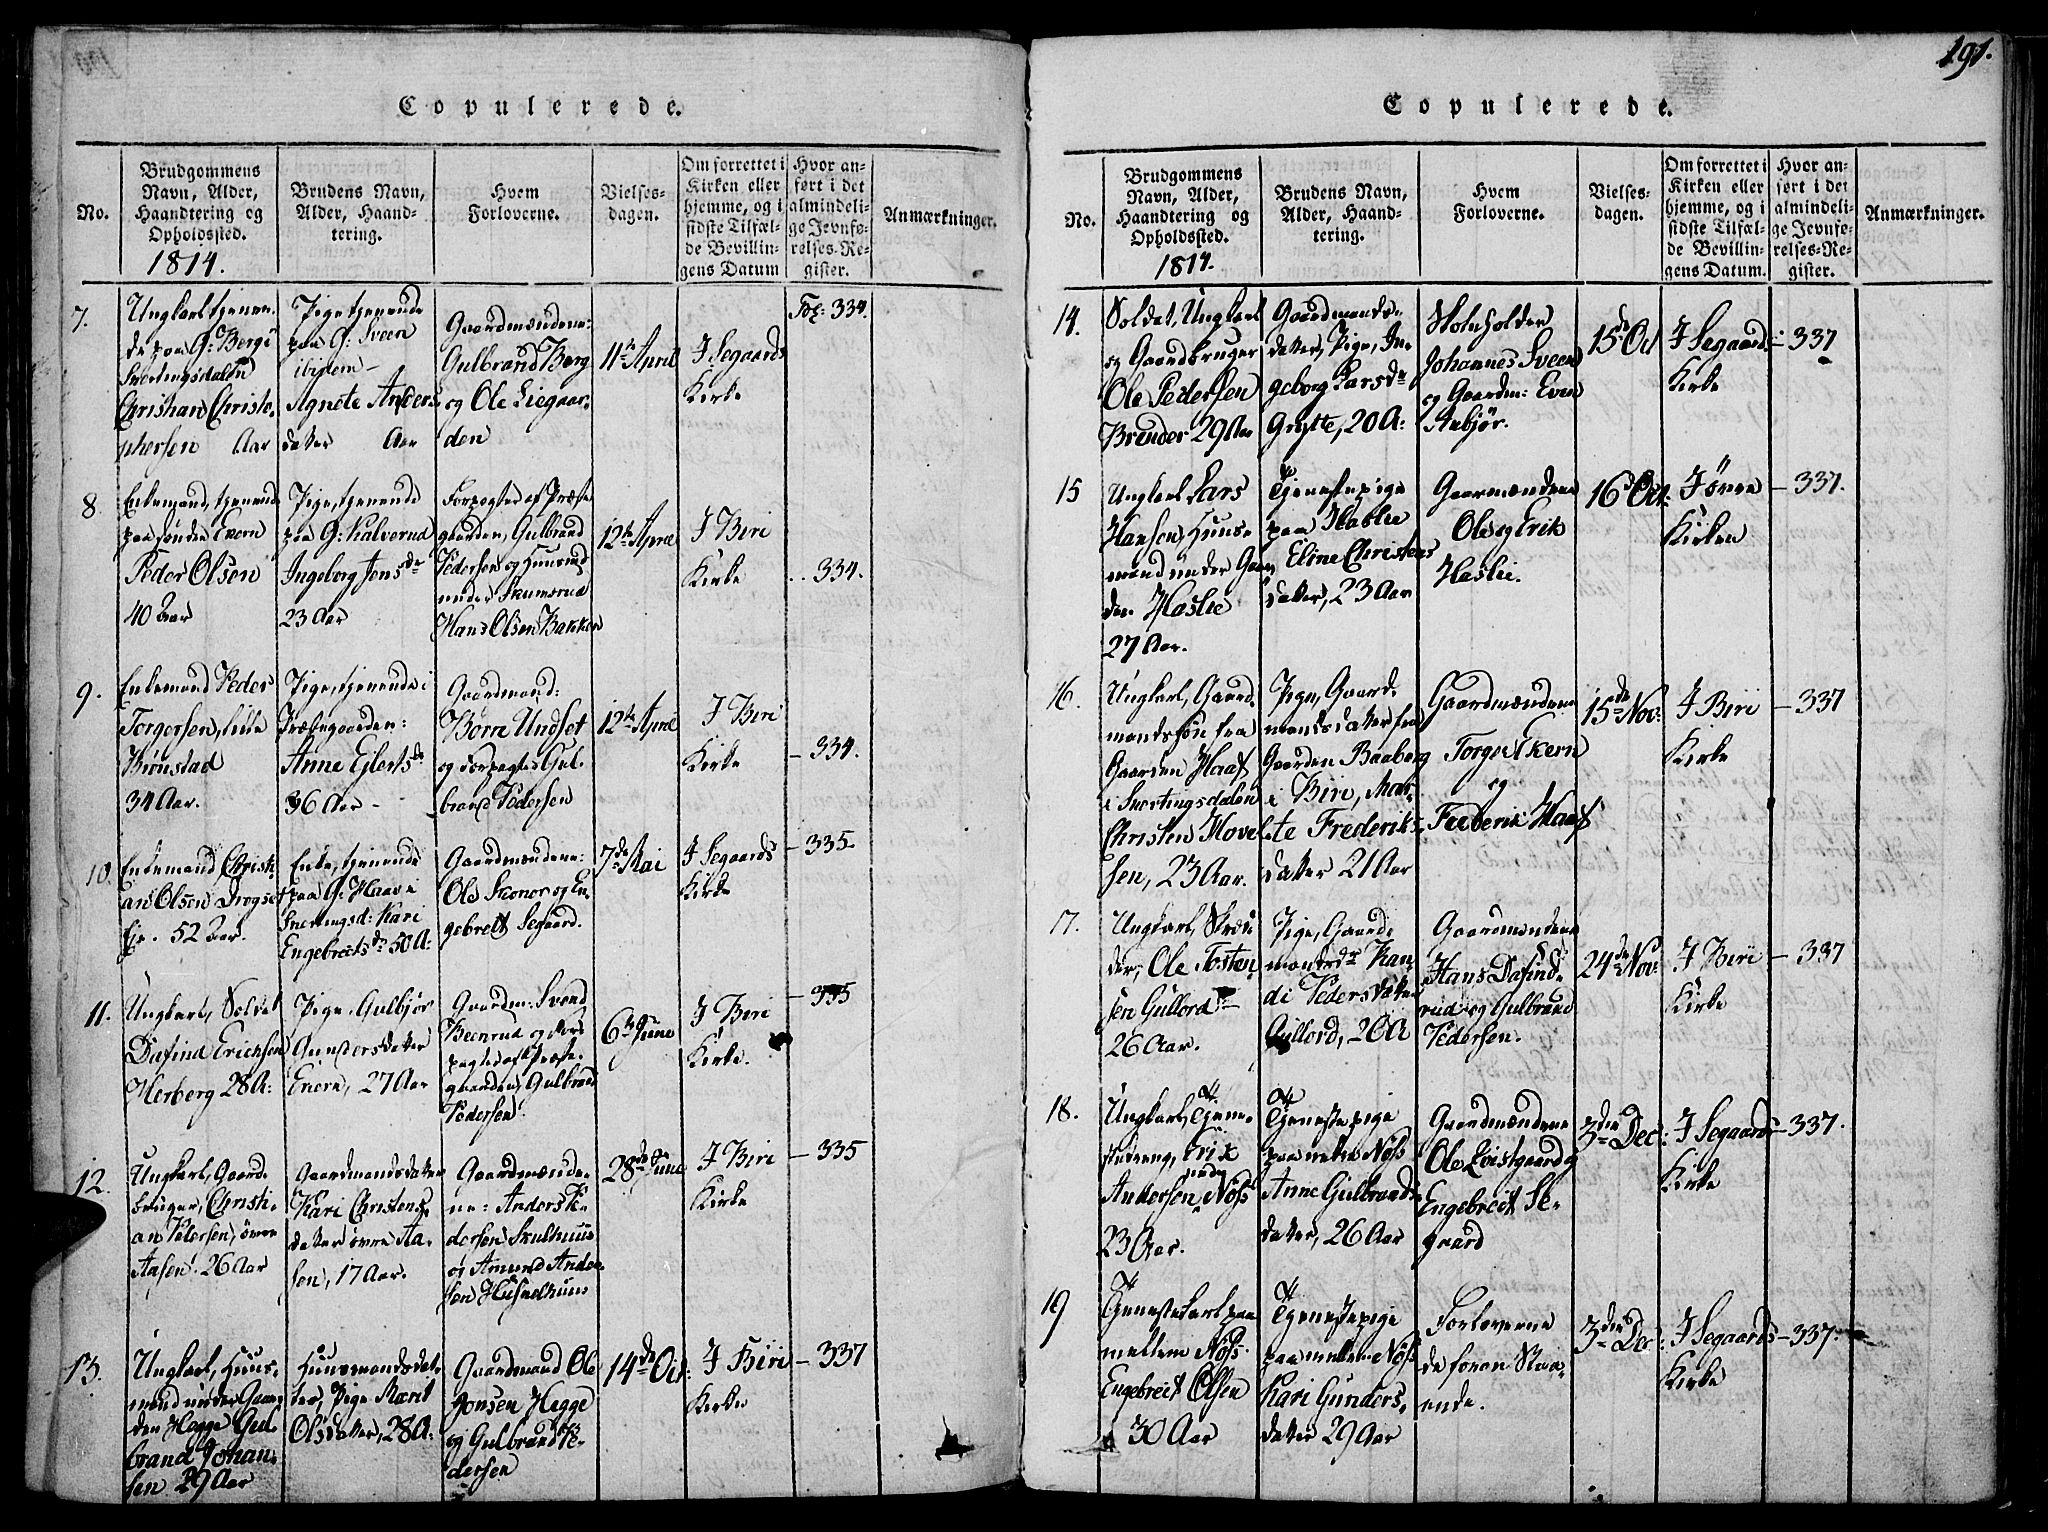 Copulerede.
No.
Brudgommens
Navn, Alder,
Haandtering og
Opholdssted.
1814.
Brudens Navn,
Alder, Haand-
tering.
Hvem
Forloverne.
Vielses-
dagen.
Om forrettet i
Kirken eller
hjemme, og i
sidste Tilfæl-
de Bevillin-
gens Datum
Hvor an-
ført i det
almindeli-
ge Jevnfø-
relses-Re-
gister.
Anmærkninger.
7.
Ungkarl tjenen-
de paa G: Berg i
Snertingsdalen
Christian Christo-
phersen Aar
Pige tjenende
paa G: Sveen
ibidem -
Agnete Anders
datter Aar
Gaardmændene:
Gulbrand Berg
og Ole Liegaar-
den
11te April
I Segaards
Kirke
Fol: 334.
8.
Enkemand, tjenende
paa søndre Enern
Peder Olsen
40 Aar
Pige, tjenende
paa G: Kalverud
Ingeborg Jensdr
23 Aar
Forpagter af Præste
gaarden, Gulbrand
Pedersen og Huusmd
under Skumsrud
Hans Olsen Bakken
12te April
I Biri
Kirke
334.
9.
Enkemand Peder
Torgersen, lille
Bjønstad
34 Aar.
Pige, tjenende i
Præstegaarden:
Anne Ejlertsdr
36 Aar -
Gaardmand:
Børre Undset
og Forpagter Gul-
brand Pedersen
12te April
I Biri
Kirke
- 334.
10.
Enkemand Christi-
an Olsen Drogset
Eje. 52 Aar.
Enke, tjenende
paa G: Haav i
Snertingsd: Kari
Engebretsdr 50 A:
Gaardmændene:
Ole Skonor og En
gebrett Segaard.
7de Mai
I Segaards
Kirke
- 335
11.
Ungkarl, Soldat
Dafind Erichsen
Herberg 28 A:
Pige, Gulbjør
Gundersdatter
Enern, 27 Aar
Gaardm: Svend
Beenrud og For-
pagter af Præste-
gaarden, Gulbrand
Pedersen
6te June
I Biri
Kirke.
- 335
12.
Ungkarl, Gaard-
bruger, Christi-
an Pedersen, øvre
Aasen 26 Aar
Gaardmandsdatter
Kari Christens-
datter øvre Aa-
sen, 17 Aar.
Gaardmænde-
ne: Anders Pe-
dersen Skulhuus
og Amund Ander-
sen
28de June
I Biri
Kirke
- 335
13.
Ungkarl, Huus-
mand under Gaar-
den Hegge Gul-
brand Johan-
sen 29 Aar
Huusmandsdat-
ter, Pige Marit
Olsdatter, 28 A:
Gaardmand Ole
Jonsen Hegge
og Gulbrand Pe-
dersen
14de Oct:
I Biri
Kirke
- 337
191.
Copulerede.
No.
Brudgommens
Navn, Alder,
Haandtering og
Opholdssted.
1814.
Brudens Navn,
Alder, Haand-
tering.
Hvem
Forloverne.
Vielses-
dagen.
Om forrettet i
Kirken eller
hjemme, og i
sidste Tilfæl-
de Bevillin-
gens Datum.
Hvor an-
ført i det
almindeli-
ge Jevnfø-
relses-Re-
gister.
Anmærkninger.
14.
Soldat, Ungkarl
og Gaardbruger
Ole Pedersen
Brender 29 Aar
Gaardmands-
datter, Pige, In-
geborg Larsdr
Grytte, 20 A:
Skoleholder
Johannes Sveen
og Gaardm: Even
Aabjør.
15de Oct
I Segaards
Kirke
- 337
15
Ungkarl Lars
Hansen, Huus-
mand under Gaar-
den Haslie
27 Aar.
Tjenestepige
paa Haslie
Eline Christens
datter, 23 Aar
Gaarmændene
Ole og Erik
Haslie.
16de Oct.
I øvre
Kirken
- 337.
16.
Ungkarl, Gaard-
mandssøn fra
Gaarden Haaf
i Snertingsdalen
Christen Hovel-
sen, 23 Aar.
Pige, Gaard-
mandsdatter fra
Gaarden Baaberg
i Biri, Mar-
te Frederiks-
datter 21 Aar
Gaardmændene
Torger Ekern
og
Frederik Haaf
15de Nov:
I Biri
Kirke
- 337
17.
Ungkarl, Skræd-
der, Ole Tosten
sen Gullord
26 Aar.
Pige, Gaard-
mandsdr Ran-
di Pedersdatter
Gullord, 20 A
Gaardmændene
Hans Dafind-
rud og Gulbrand
Pedersen.
24de Nov:
I Biri
Kirke
- 337
18.
Ungkarl, Tjene-
stedreng, Erik
Andersen Nøss
23 Aar.
Tjenestepige
paa nedre Nøss
Anne Gulbrands
datter, 26 Aar
Gaardmændene
Ole Qvistgaard og
Engebrett Se-
gaard
3die Dec:
I Segaards
Kirke
- 337.
19
Tjenestekarl paa
mellem Nøss
Engebret Olsen
30 Aar
Tjenestepige
paa mellem Nøss
Kari Gunders-
datter 29 Aar
Forloverne
de foran Staa-
ende.
3die Dec:
I Segaards
Kirke
- 337.